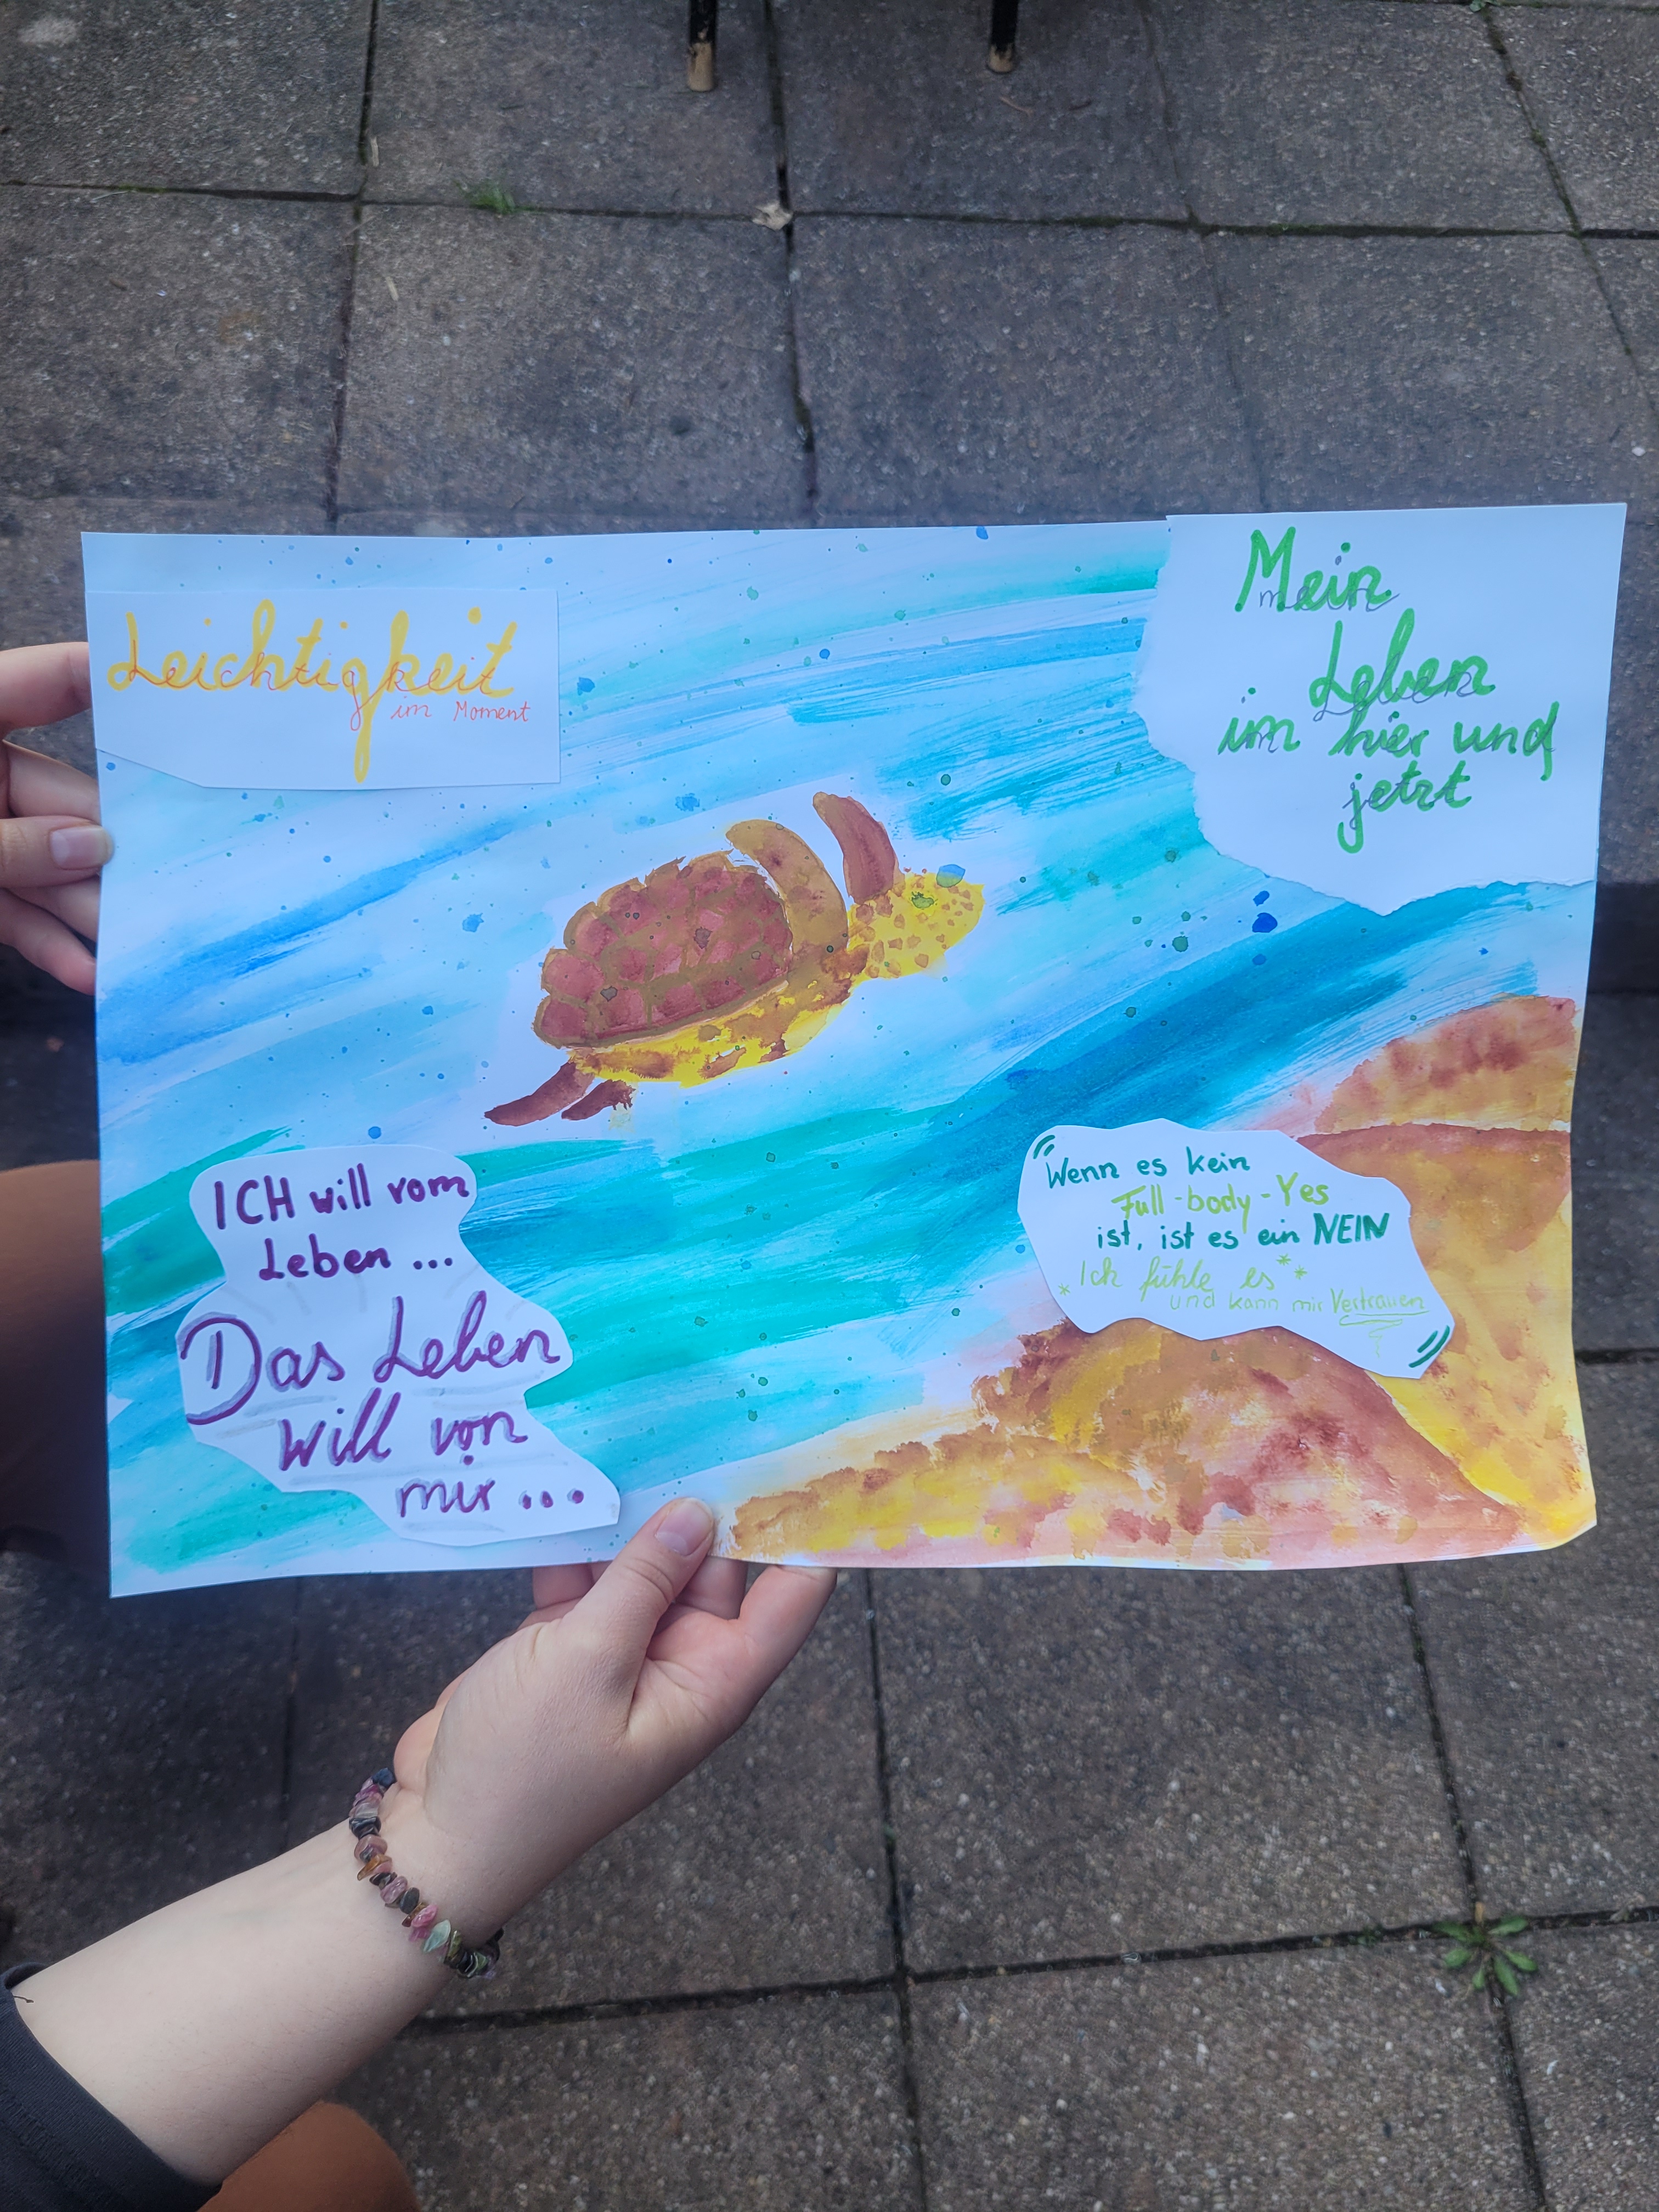 Leichtigkeit
im Moment
Mein
Leben
im hier und
jetzt
ICH will vom
Leben ...
Das Leben
will von
mir ...
Wenn es kein
Full-body-Yes
ist, ist es ein NEIN
*Ich fühle es**
und kann mir Vertrauen